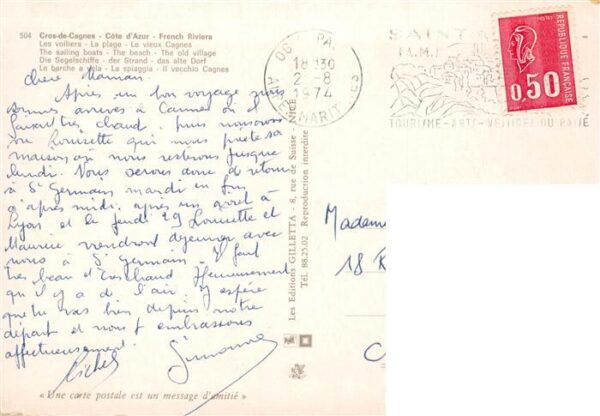 504 Cros-de-Cagnes - Côte d'Azur - French Riviera
Les voiliers - La plage - Le vieux Cagnes
The sailing boats - The beach - The old village
Die Segelschiffe - der Strand - das alte Dorf
Le barche a vela - La spiaggia - Il vecchio Cagnes
chère Maman,
Après un bon voyage nous
sommes arrivés à Cannes où il
faisait très chaud, puis
Loucette qui nous prête sa
maison où nous resterons jusque
lundi. Nous serons donc de retour
à St Germain mardi en fin
d'après midi, après un arrêt à
Lyon et le jeudi 29 Loucette et
Maurice viendront déjeuner avec
nous à St Germain. Il fait
très beau et très chaud Heureusement
qu'il y a de l'air. J'espère
que tu vas bien depuis notre
départ et nous t'embrassons
affectueusement.
Michel Simonne
« Une carte postale est un message d'amitié »
Les Editions GILLETTA - 8, rue de Suisse - NICE
Tél. 88.25.02 Reproduction interdite
06
18H30
2-8
1974
MARIT
SAINT
(A.M.)
TOURISME-ARTS-VESTIGES DU PASSÉ
0,50
REPUBLIQUE FRANÇAISE
Madame
18 R